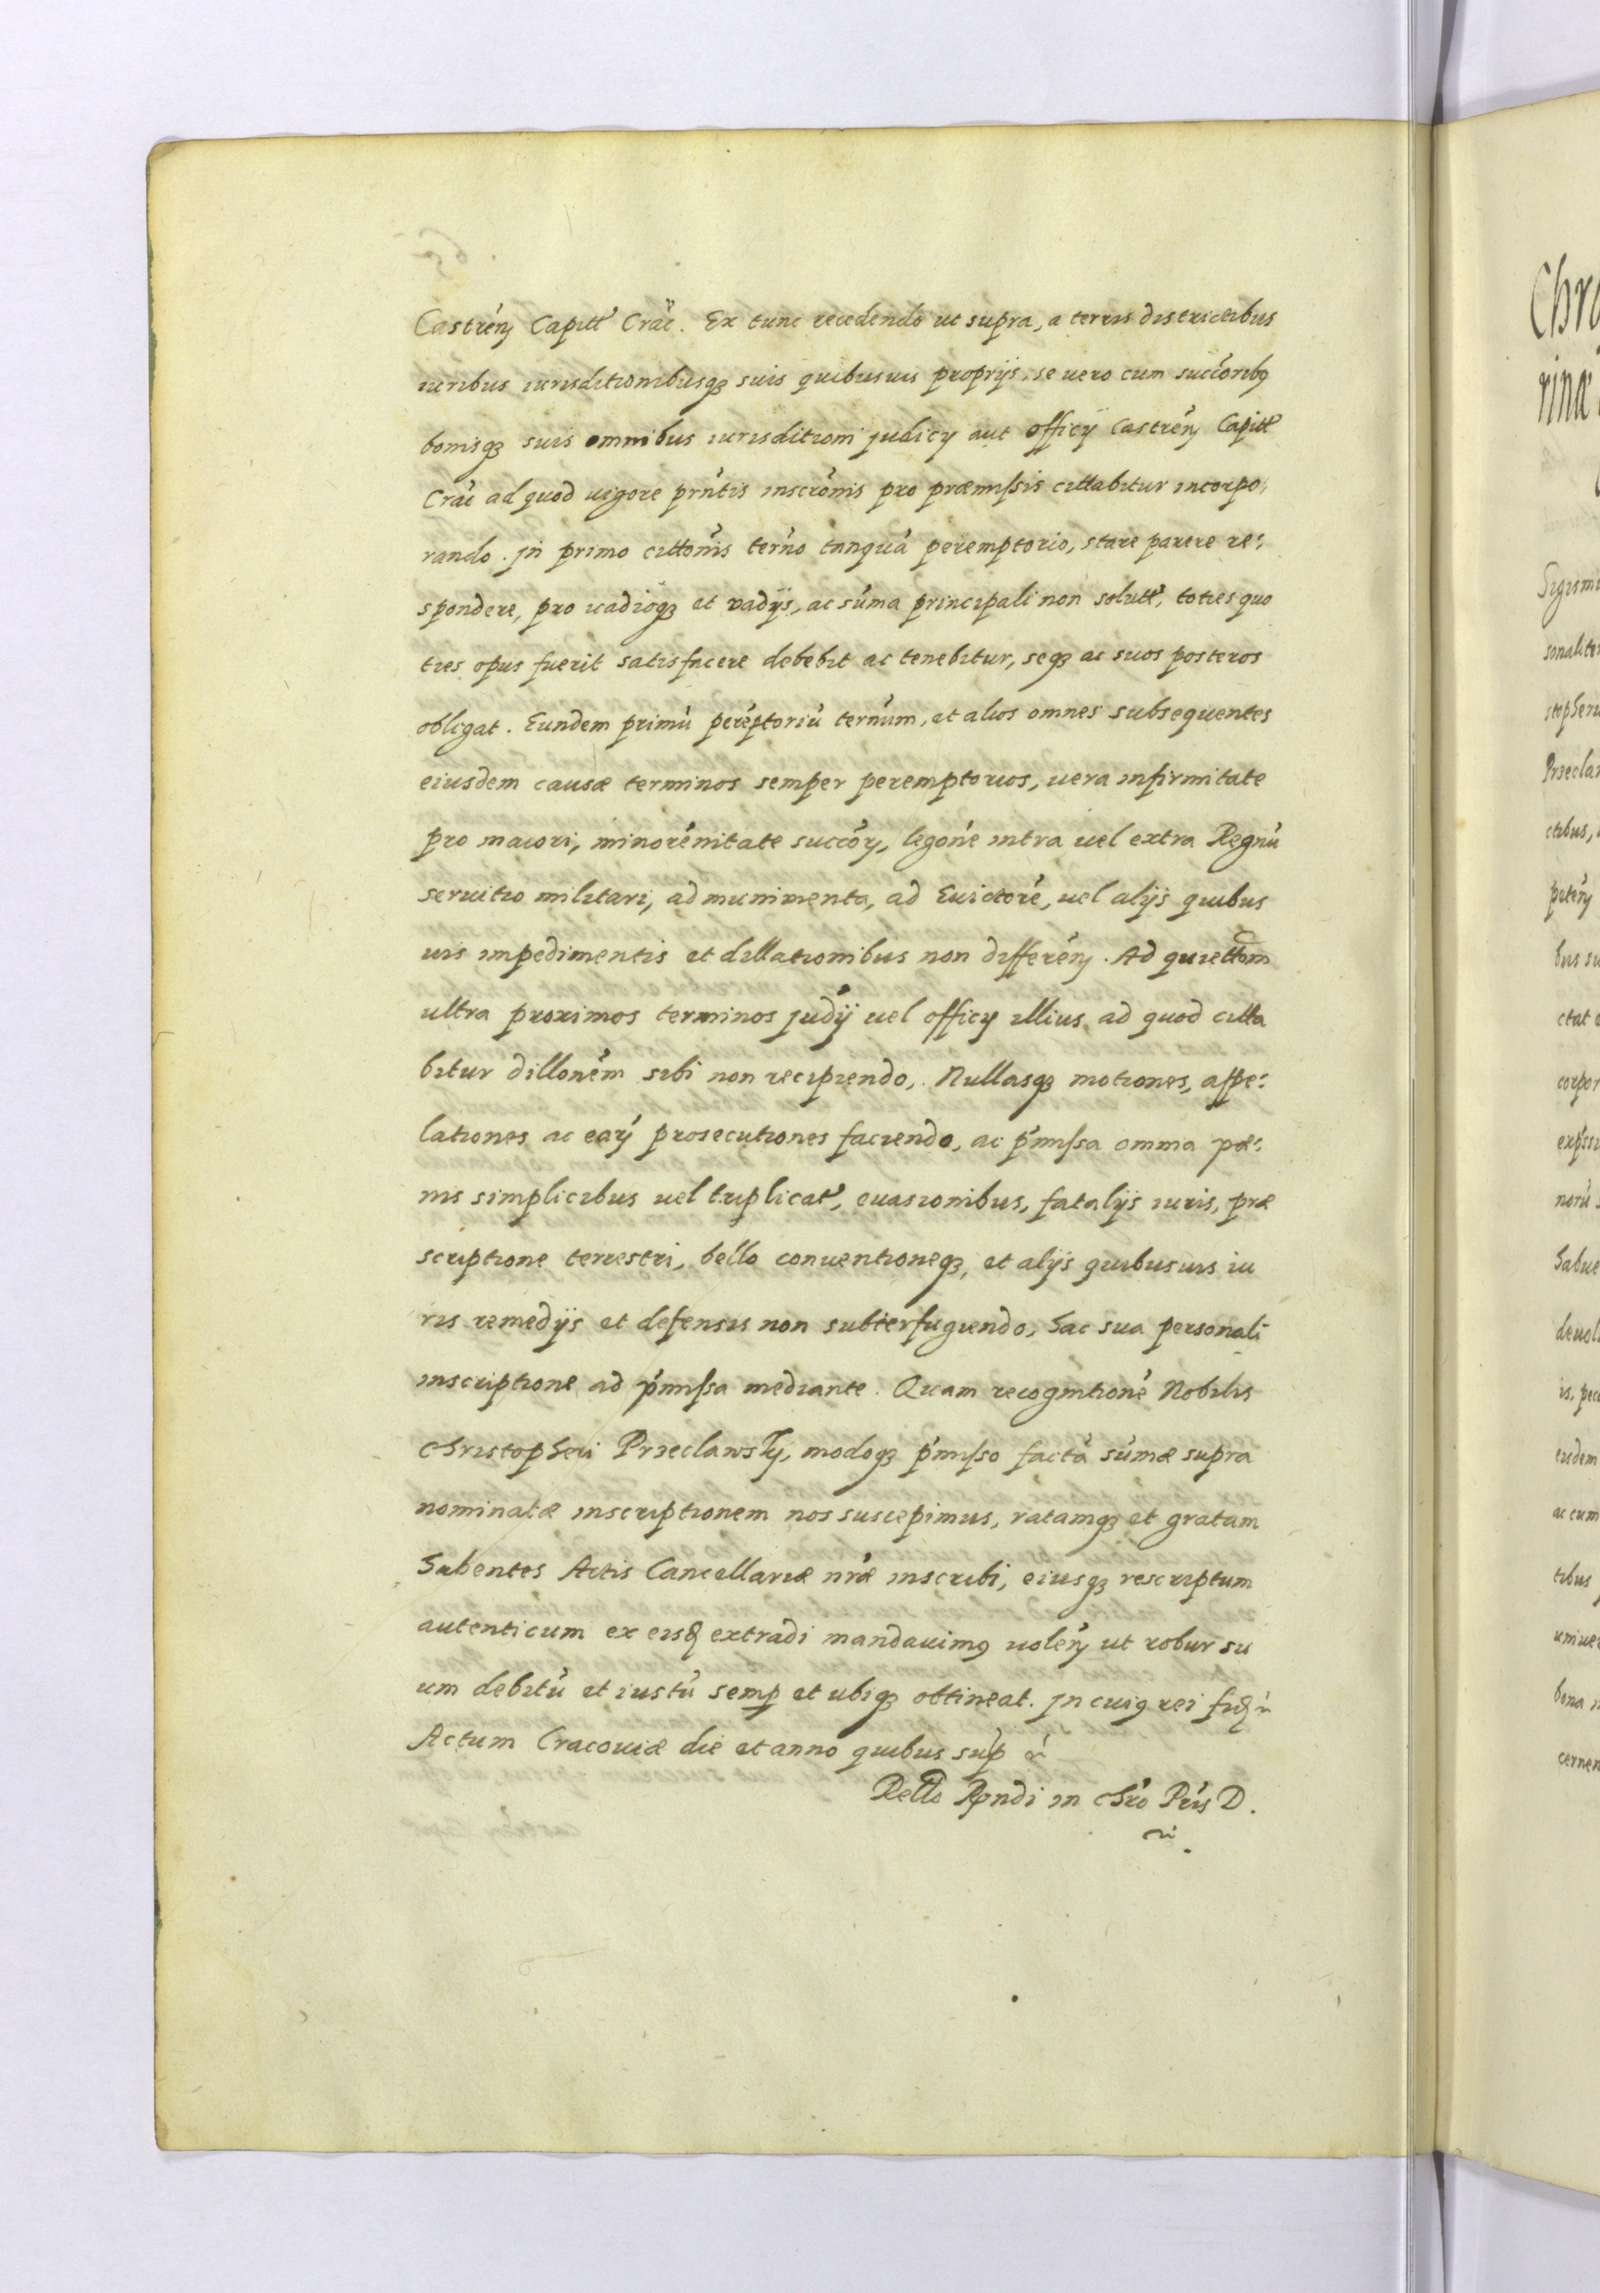 Castrēn Capitł Crāc. Ex tunc recedendo ut supra, a terris districtibus
iuribus iurisditionibusqꝫ suis quibusuis proprijs, se uero cum succōribꝰ
bonisqꝫ suis omnibus iurisditioni judicÿ aut officÿ Castrēn Capitł
Crāc ad quod uigore prn̄tis inscrōnis pro præmissis cittabitur incorpo,
rando. jn primo cittōnis terno tanquā peremptorio, stare parere re:
spondere, pro uadioqꝫ et vadijs, ac sūma principali non solutł, toties quo
ties opus fuerit satisfacere debebit ac tenebitur, seqꝫ ac suos posteros
obligat. Eundem primū perēptoriū ternum, et alios omnes subsequentes
eiusdem causæ terminos semper peremptorios, uera infirmitate
pro maiori, minorēnitate succōrꝝ, legōne intra uel extra Regnū
seruitio militari, ad munimenta, ad Euictorē, uel alijs quibus
uis impedimentis et dillationibus non differēn. Ad quiettōm
ultra proximos terminos judÿ uel officÿ illius ad quod citta
bitur dillonēm sibi non recipiendo, Nullasqꝫ motiones, appe:
lationes ac earꝝ prosecutiones faciendo, ac p̄missa omnia pæ:
nis simplicibus uel triplicatł, euasionibus, fatalijs iuris, præ
scriptione terrestri, bello conuentioneqꝫ, et alijs quibusuis iu
ris remedijs et defensis non subterfugiendo, hac sua personali
inscriptione ad p̄missa mediante. Quam recognitionē Nobilis
Christopheri Przeclawsky, modoqꝫ p̄misso factā sūmæ supra
nominatæ inscriptionem nos suscepimus, ratamqꝫ et gratam
habentes Actis Cancellariæ nræ inscribi, eiusqꝫ rescriptum
autenticum ex eisd extradi mandauimꝰ uolēn ut robur su
um debitū et iustū semp et ubiqꝫ obtineat. jn cuiꝰ rei fid
Actum Cracouiæ die et anno quibus sup
Rello Rndi in Chro Pris D.